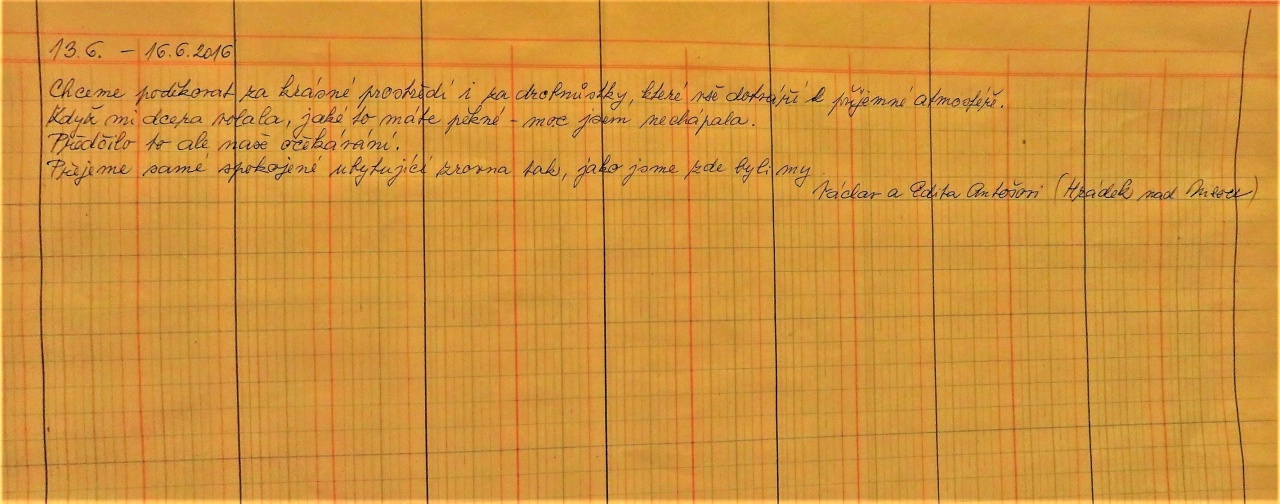 13.6. – 16.6.2016
Chceme poděkovat za krásné prostředí i za drobnůstky, které vše dotváří k příjemné atmosféře.
Když mi dcera volala, jaké to máte pěkné – moc jsem nechápala.
Předčilo to ale naše očekávání.
Přejeme samé spokojené ubytující zrovna tak, jako jsme zde byli my
Václav a Edita Antošovi (Hrádek nad Nisou)